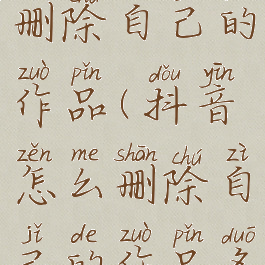 删除自己的
zuò pǐn dǒu yīn
作品(抖音
zěn me shān chú zì
怎么删除自
jǐ de zuò pǐn duō
己的作品多